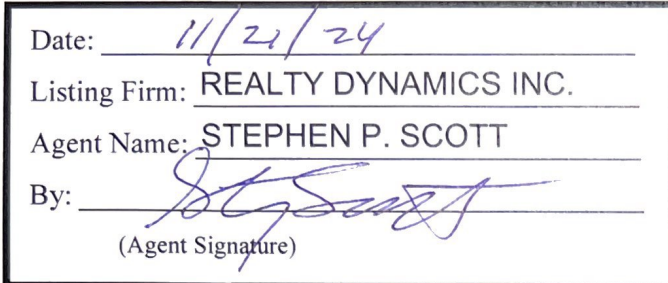 Date: 11/21/24
Listing Firm: REALTY DYNAMICS INC.
Agent Name: STEPHEN P. SCOTT
By:
(Agent Signature)